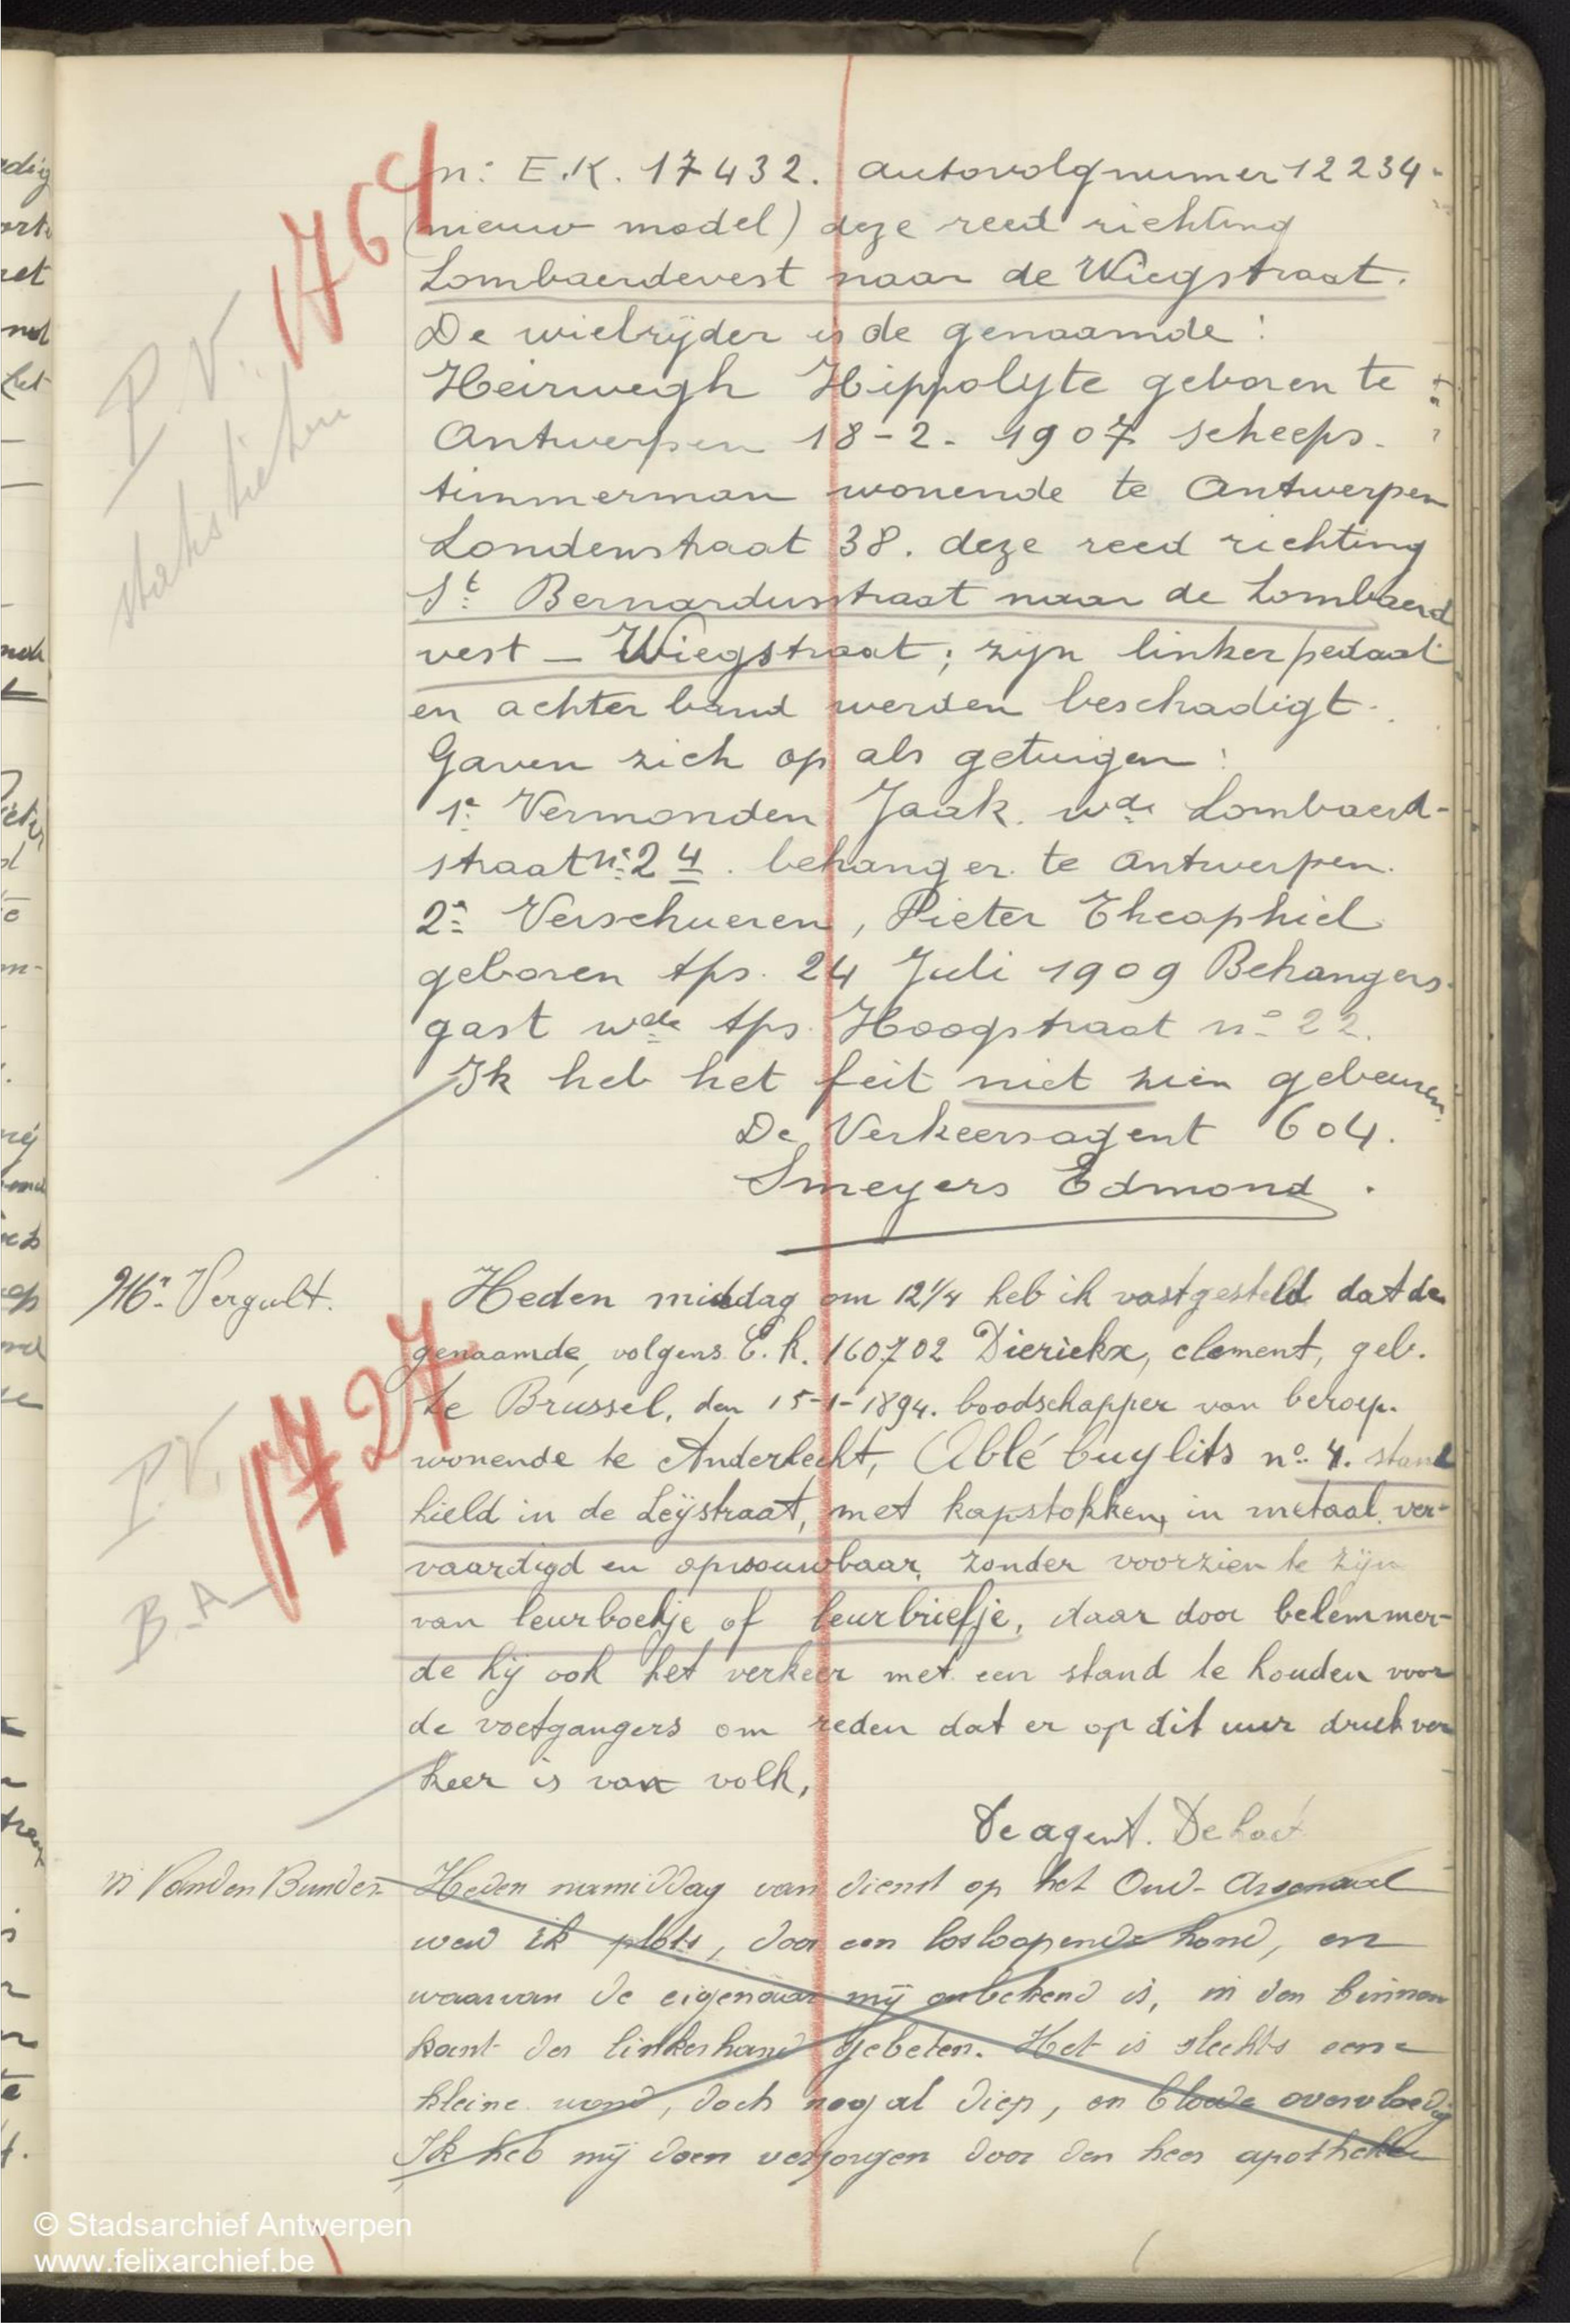 1764
P.V.
statistieken
n: E.K. 17432. autovolgnumer 12234-
(nieuw model) deze reed richting
Lombaerdevest naar de Wiegstraat.
De wielrijder is de genaamde:
Heirwegh Hippolyte geboren te
Antwerpen 18-2-1907 scheeps-
timmerman wonende te Antwerpen
Londenstraat 38. deze reed richting
St Bernardusstraat naar de Lombaerd
vest - Wiegstraat; zijn linker pedaal
en achter band werden beschadigt.
Gaven zich op als getuigen:
1e Vermonden Jaak. wde Lombaerd-
straat n: 24. behanger te Antwerpen.
2e Verschueren, Pieter Theophiel
geboren Aps. 24 Juli 1909 Behangers
gast wde Aps. Hoogstraat no 22.
Ik heb het feit niet zien gebeuren
De Verkeersagent 604.
Smeyers Edmond.
Mr Vergult.
1727
P.V.
B.A
Heden middag om 12 1/4 heb ik vastgesteld dat de
genaamde, volgens E.k. 160702 Dierickx, clement, geb.
te Brussel, den 15-1-1894. boodschapper van beroep.
wonende te Anderlecht, Ablé Cuylits no. 4. stand
hield in de Leÿstraat, met kapstokken, in metaal ver-
vaardigd en opvouwbaar, zonder voorzien te zijn
van leurboekje of leurbriefje, daar door belemmer-
de hij ook het verkeer met een stand te houden voor
de voetgangers om reden dat er op dit uur druk ver
keer is van volk,
De agent.
Vanden Bunder
Heden namiddag van dienst op het Oud-Arsenaal
werd ik plots, door een losloopende hond, en
waarvan de eigenaar mij onbekend is, in den binnen
kant der linkerhand gebeten. Het is slechts eene
kleine wond, doch nog al diep, en bloede overvloedig
Ik heb mij doen verzorgen door den heer apotheker
© Stadsarchief Antwerpen
www.felixarchief.be